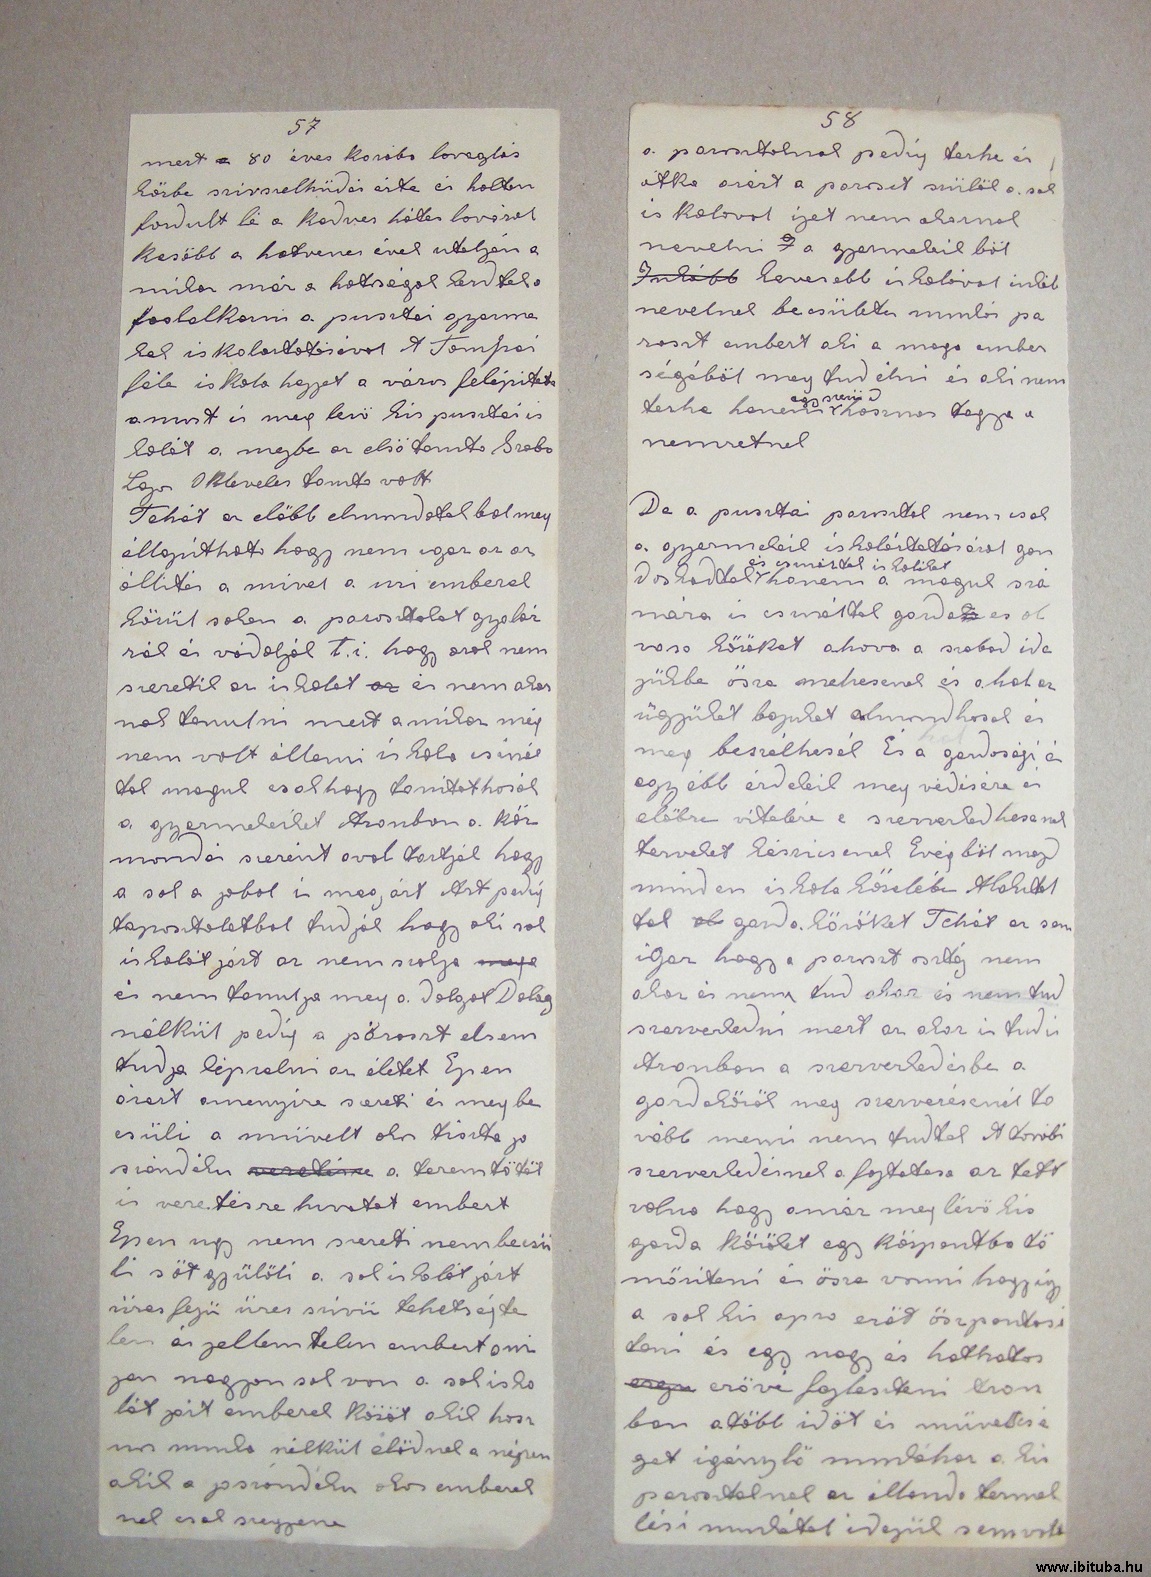 57
mert a 80 éves korába lovaglás
közbe szivszelhüdés érte és holtan
fordult lé a kedves hátas lováról
késöbb a hatvenes évek utolján a
mikor már a hatóságok kesdtek
foglalkozni a pusztai gyerme
kek iskoláztatásával A Tompai
féle iskola hejjet a város felépitete
a most is meg levö kis pusztai is
kolát a mejbe az elsö tanito Szabo
Lajos Okleveles tanito volt
Tehát az elöbb elmondotakbol meg
állapitható hogy nem igaz az az
állitás a mivel a uri emberek
körül soken a parasztokat gyaláz
zák és vádolják T.i. hogy azok nem
szeretik az iskolát az és nem akar
nak tanulni mert amikor még
nem volt állami iskola csinál
tak maguk csakhogy tanitathasák
a gyermekeiket Azonban a köz
mondás szerént aval tartják hogy
a sok a jobol is megárt Azt pedig
tapasztalatbol tudják hogy aki sok
iskolát járt az nem szolja maga
és nem tanulja meg a dolgot Dolog
nélkül pedig a pároszt elsem
tudja képzelni az életet Épen
ózért amenyire szereti és megbe
csüli a müvelt okos tiszta jo
szándéku vezetésre a teremtötöl
is vezetésre hivatot embert
Épen ugy nem szereti nem becsü
li söt gyülöli a sok iskolát járt
üres fejü üres szivü tehetségte
len és jellemtelen embert ami
jen nagyon sok von a sok isko
lát járt emberek között akik hasz
nos munka nélkül élödnek a népen
akik a jószándéku okos emberek
nek csak szegyene
58
a parasztoknak pedig terhe és
átka azért a paraszt szülök a sok
is kolával ijet nem akarnak
nevelni I a gyermekeik böl
Inkább kevesebb iskolával inkáb
nevelnek becsületes munkás pa
raszt embert aki a maga ember
ségéböl meg tud élni és aki nem
terhe hanem egyszerü hasznos tagja a
nemzetnek
De a pusztai parasztok nemcsak
a gyermekeik iskoláztatásárol gon
doskodtak és csináltak iskolákat hanem a maguk szá
mára is csináltak gazda és ol
vaso köröket ahova a szabad ide
jükbe ösze mehesenek és ahol az
ügyüket bajukat elmondhasák és
meg beszélhesék És a gazdasági és
egyébb érdekeik meg védésére és
elöbre vitelére szervezkedhesenek
terveket készicsenek Evégböl majd
minden iskola közelébe Alakitot
tak ol gazda köröket Tehát az sem
igaz hogy a paraszt osztáj nem
akar és nem tud akar és nem tud
szervezkedni mert az akar is tud is
Azonban a szervezkedésbe a
gazdakörök meg szervezésenél to
vább menni nem tudtak A továbi
szervezkedésnek a fojtatasa az lett
volna hogy a már meg lévö kis
gazda köröket egy központba tö
möriteni és ösze vonni hogy igy
a sok kis apro eröt öszpontosi
tani és egy nagy és hathatos
erövé fejleszteni Azon
ban a több idöt és müveltsé
get igénylö munkához a kis
parasztoknak az állando termel
lési munkától idejük sem volt
www.ibituba.hu